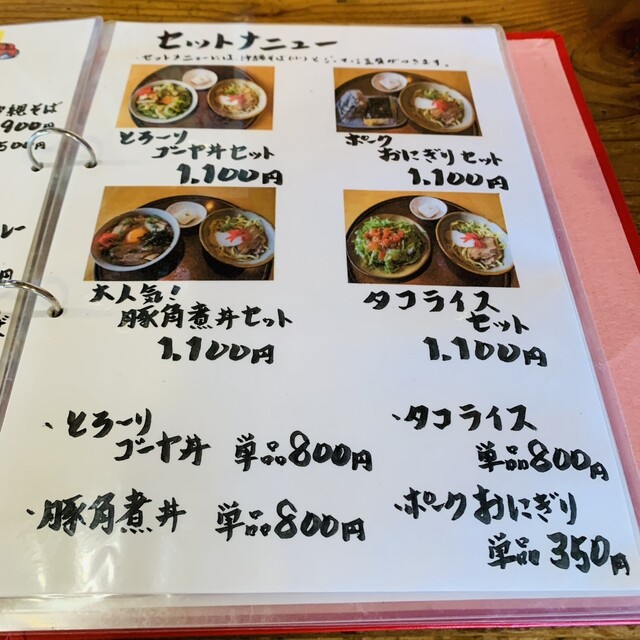 セットメニュー
・セットメニューには、沖縄そば(小)とジーマーミ豆腐がつきます。
とろ〜り
ゴーヤ丼セット
1,100円
ポーク
おにぎりセット
1,100円
大人気!
豚角煮丼セット
1,100円
タコライス
セット
1,100円
・とろ〜り
ゴーヤ丼 単品800円
・タコライス
単品800円
・豚角煮丼 単品800円
・ポークおにぎり
単品 350円
縄そば
900円
500円
レー
円